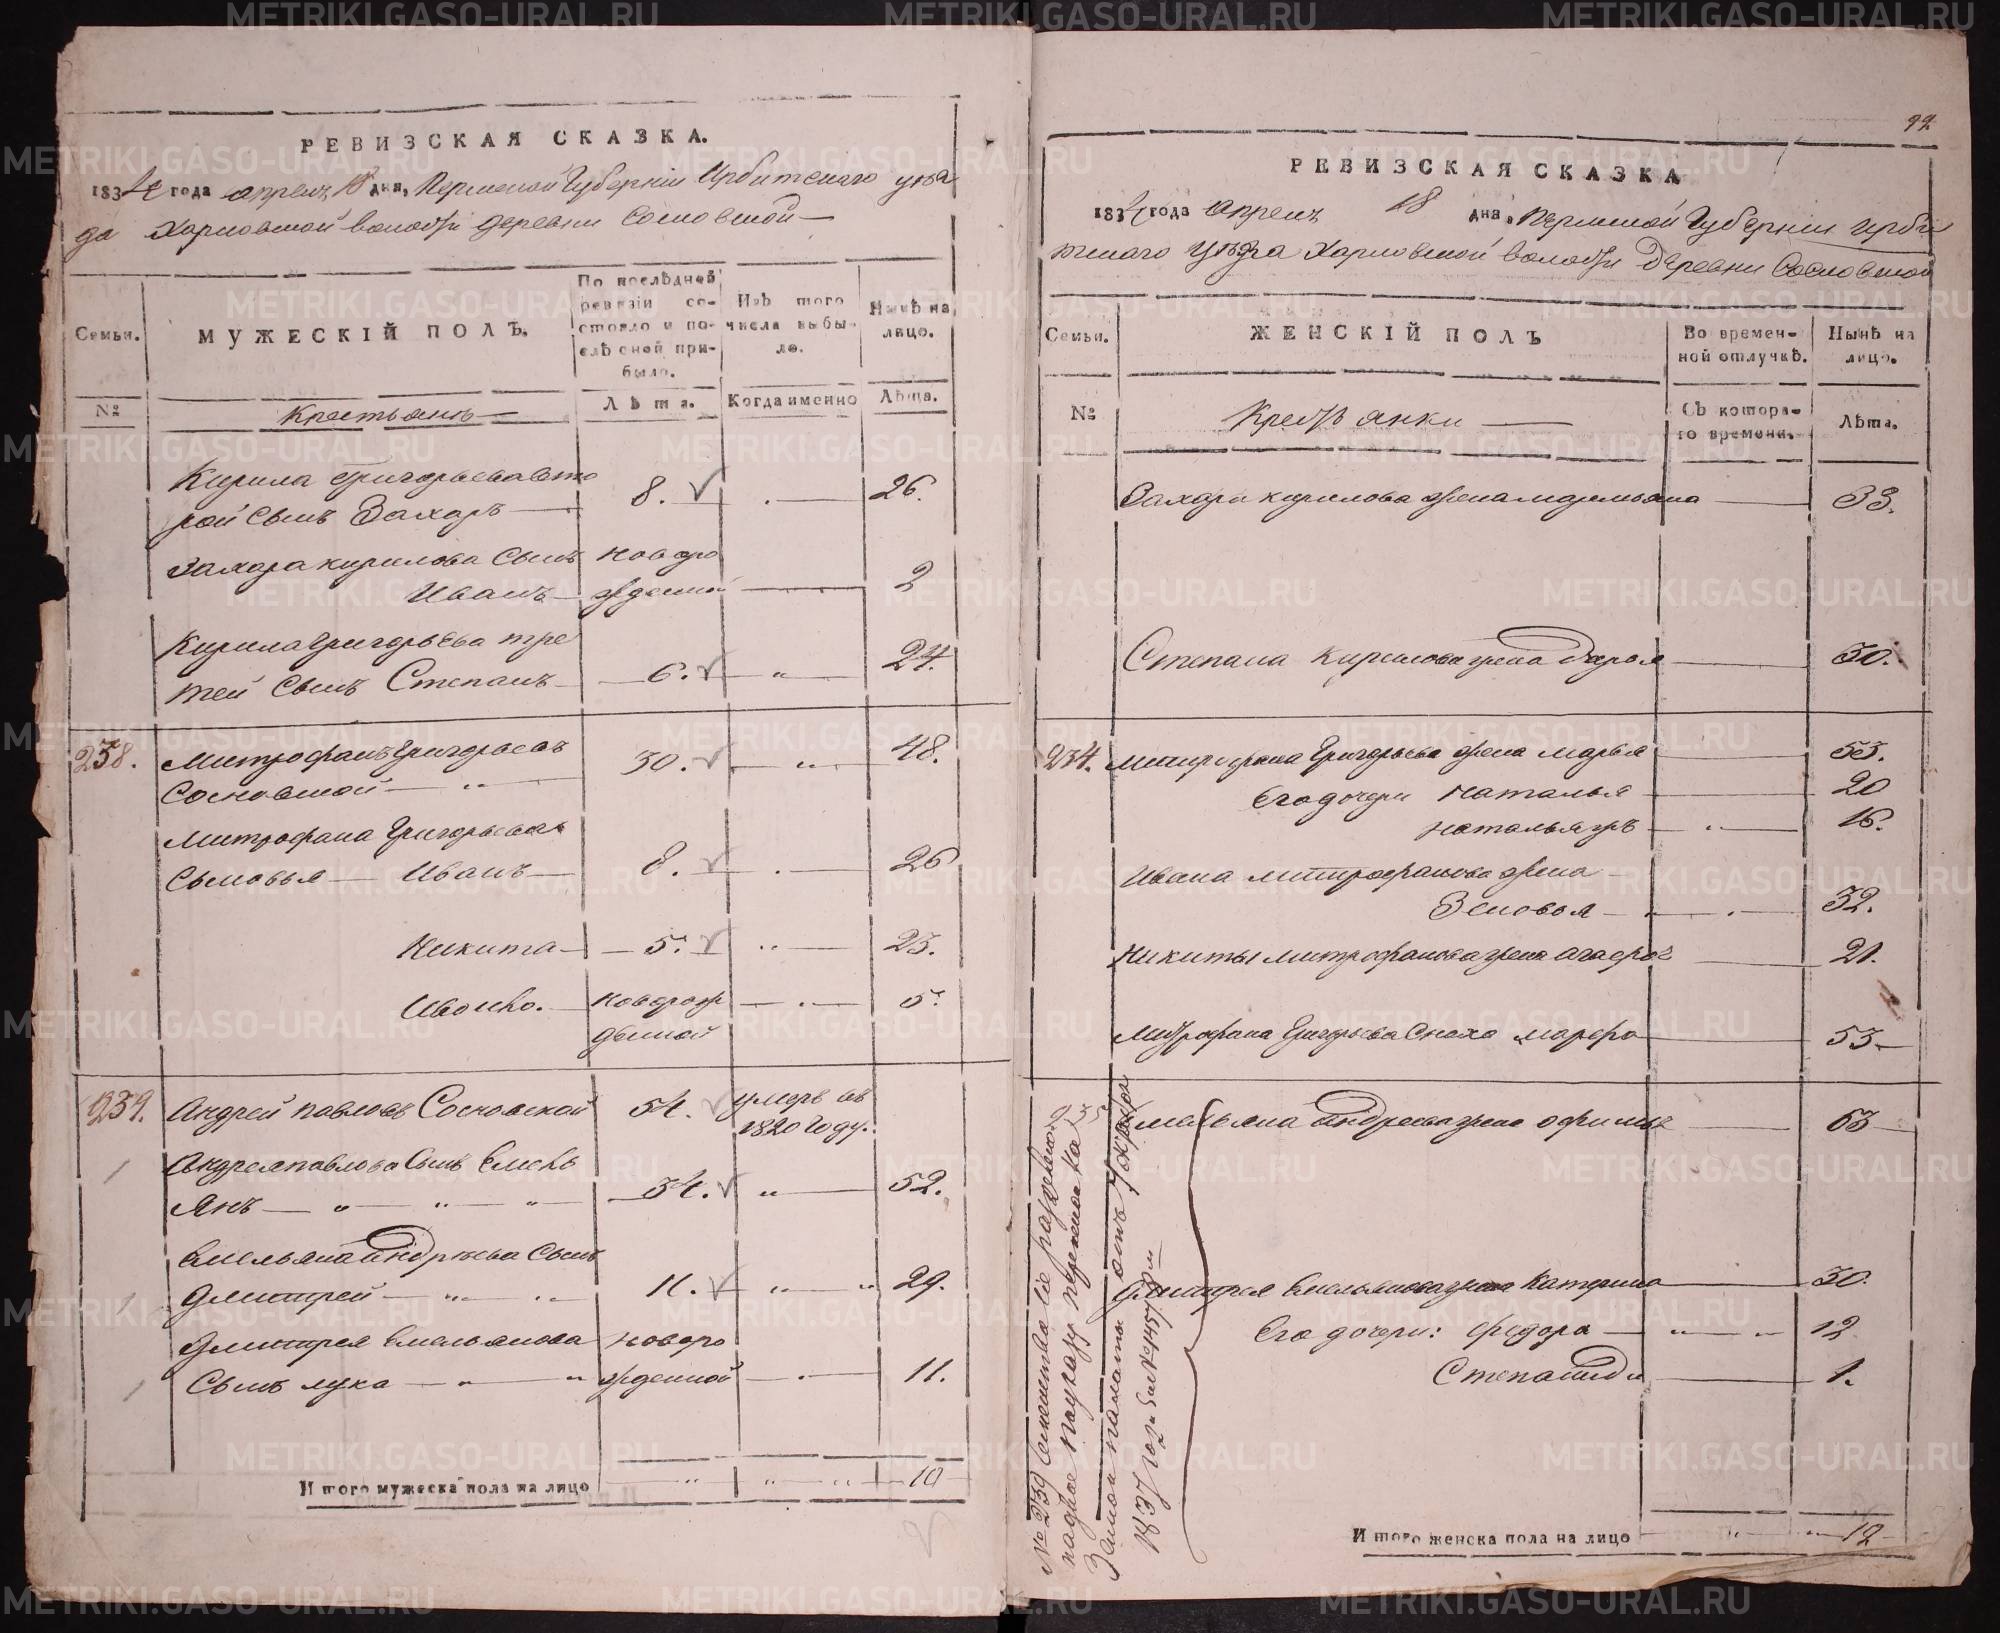 РЕВИЗСКАЯ СКАЗКА.
1834 года апреля 18 дня, Пермской Губернiи Ирбитскаго уез
да Харловской волости деревни Сосновской
Семьи.
МУЖЕСКІЙ ПОЛЪ.
По послѣдней ревизіи состояло и послѣ оной прибыло.
Изъ того числа выбыло.
Нынѣ на лицо.
№
Крестьянъ
Лѣта.
Когда именно
Лѣта.
Кирила Григорьева вто
рой сынъ Захаръ 8. 26.
Захара кирилова сынъ новоро
Иванъ жденной 2
Кирила Григорьева тре
тей сынъ Степанъ 6. " 24.
238. Митрофанъ Григорьевъ 30. " 48.
Сосновской
Митрофана Григорьева
сыновья Иванъ 8. 26
Никита 5. 23.
Ивонко. новорож 5.
денной
239. Андрей павловъ Сосновской 54. умеръ въ
1820 году.
Андрея павлова сынъ Емель
1 янъ 34. " 52.
Емельяна Андреева сынъ
1 Дмитрей 11. 29.
Дмитрея Емельянова новоро
1 сынъ лука жденной 11.
И того мужеска пола на лицо 10
99.
РЕВИЗСКАЯ СКАЗКА
1834 года апреля 18 дня. Пермской Губернiи Ирби
тскаго уезда Харловской волости деревни Сосновской
Семьи.
ЖЕНСКІЙ ПОЛЪ
Во временной отлучкѣ.
Нынѣ на лицо.
№
Крестьянки
Съ котораго времени.
Лѣта.
Захара кирилова жена 33.
Степана кирилова жена дарья 30.
234. Митрофана Григорьева жена марья 53.
Его дочери Наталья 20
наталья 16.
Ивана митрофанова жена
Зеновья 32.
Никиты митрофанова жена 21.
Митрофана Григорьева сноха марфа 53
235
Емельяна Андреева жена 53
Дмитрея Емельянова жена Катерина 30.
Его дочери: федора 12
Степанида 1.
И того женска пола на лицо 12
№ 239 Семейства
1837 года
METRIKI.GASO-URAL.RU